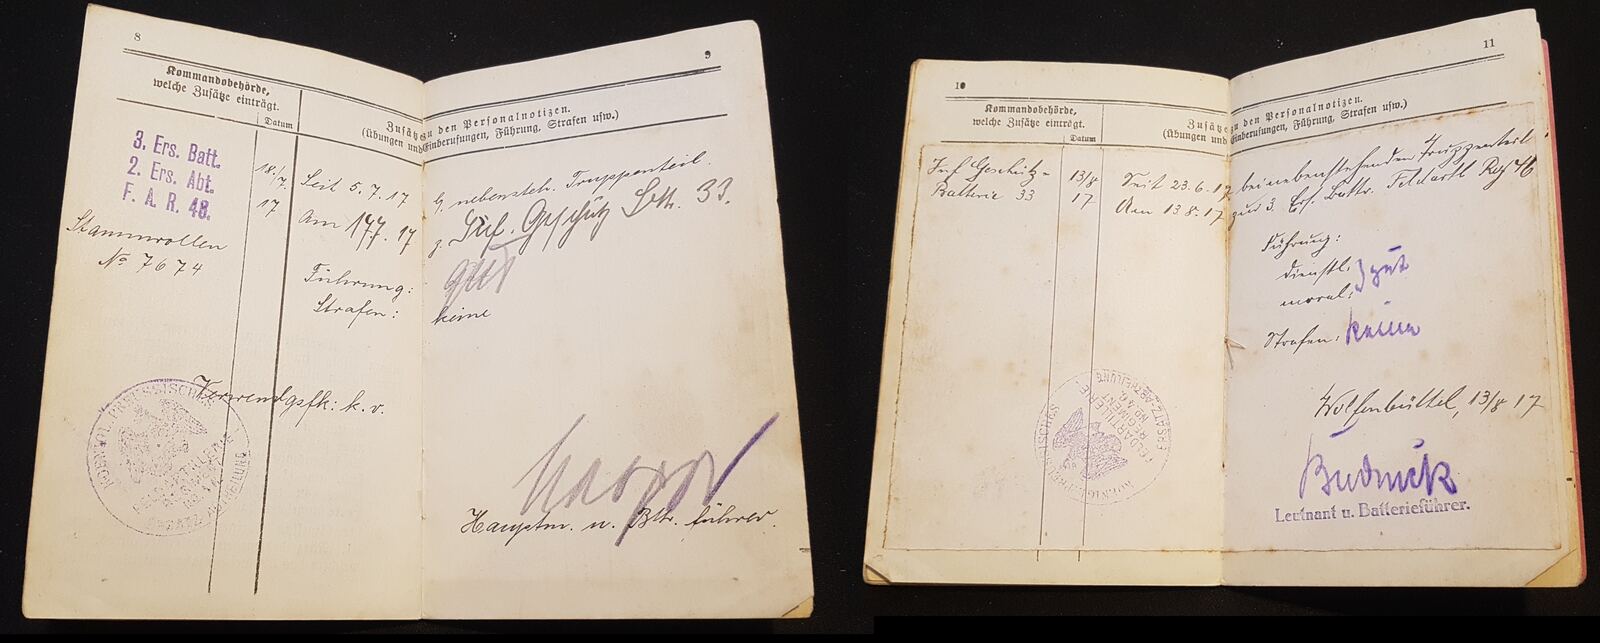 8
Kommandobehörde,
welche Zusätze einträgt.
Datum
Zusätze
(Übungen und
3. Ers. Batt.
2. Ers. Abt.
F. A. R. 48.
Stammrollen
No 7674
18./7.
17
Seit 5.7.17
Am 17.7.17
Führung:
Strafen:
Verwendgsfk: k.v.
9
zu den Personalnotizen.
Einberufungen, Führung, Strafen usw.)
b. nebensteh. Truppenteil.
z. Inf. Geschütz Bttr. 33.
gut
keine
Hauptm. u. Bttr. führer.
10
Kommandobehörde,
welche Zusätze einträgt.
Datum
Zusätze
(Übungen und
Inf Geschütz-
Batterie 33
13/8
17
Seit 23.6.17
Am 13.8.17
KÖNIGL. PREUSSISCHES
FELDARTILLERIE
REGIMENT
NO 46
ERSATZ-ABTEILUNG
11
zu den Personalnotizen.
Einberufungen, Führung, Strafen usw.)
bei nebenstehenden Truppenteil
zur 3. Ers. Battr. Feldartl Reg 46
Führung:
dienstl:
moral:
gut
Strafen: keine
Wolfenbüttel, 13/8 17
Leutnant u. Batterieführer.